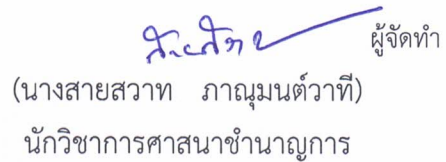 ผู้จัดทำ
(นางสายสวาท ภาณุมนต์วาที)
นักวิชาการศาสนาชำนาญการ